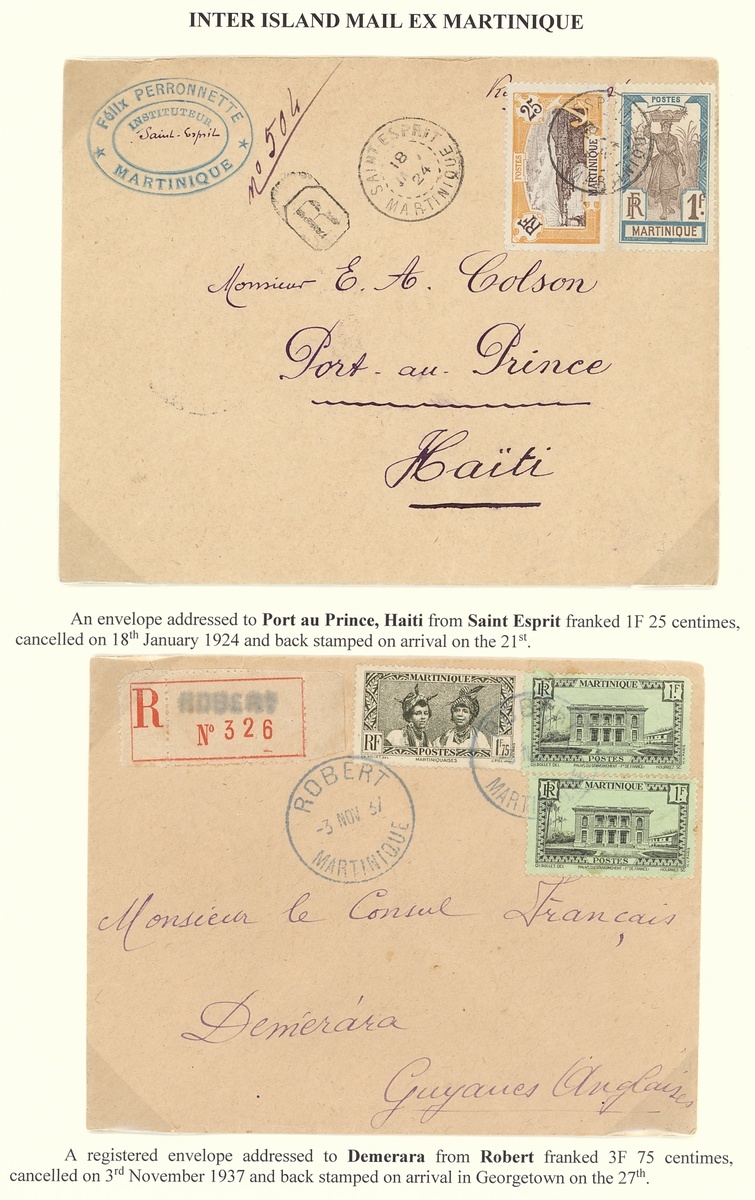 INTER ISLAND MAIL EX MARTINIQUE
Félix PERRONNETTE
INSTITUTEUR
Saint-Esprit
★ MARTINIQUE ★
nº 504
R
SAINT-ESPRIT
18
24
MARTINIQUE
25
POSTES
MARTINIQUE
RF
POSTES
RF 1F.
MARTINIQUE
Monsieur E. A. Colson
Port-au-Prince
Haïti
An envelope addressed to Port au Prince, Haiti from Saint Esprit franked 1F 25 centimes,
cancelled on 18th January 1924 and back stamped on arrival on the 21st.
R ROBERT
Nº 326
MARTINIQUE
RF POSTES 1F75
MARTINIQUAISES
RF MARTINIQUE 1F.
POSTES
RF MARTINIQUE 1F.
POSTES
ROBERT
-3 NOV 37
MARTINIQUE
Monsieur le Consul Français
Demérára
Guyanes Anglaises
A registered envelope addressed to Demerara from Robert franked 3F 75 centimes,
cancelled on 3rd November 1937 and back stamped on arrival in Georgetown on the 27th.